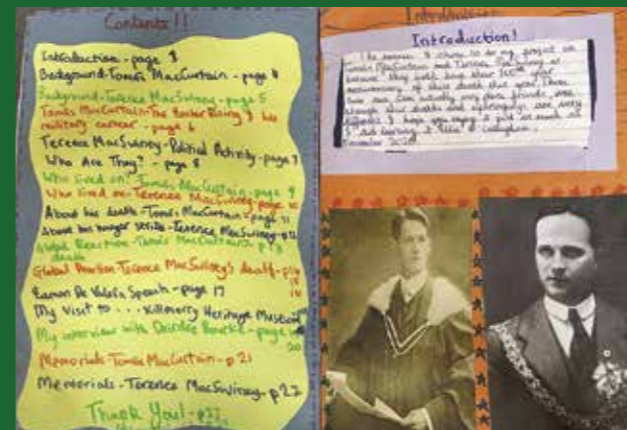 Contents!!
Introduction - page 3
Background - Tomás MacCurtain - page 4
Background - Terence MacSwiney - page 5
Tomás MacCurtain - The Easter Rising & his
military career - page 6
Terence MacSwiney - Political Activity - page 7
Who Are They? - page 8
Who lived on? Tomás MacCurtain - page 9
Who lived on - Terence MacSwiney - page 10
About his death - Tomás MacCurtain - page 11
About his hunger strike - Terence MacSwiney - p12
Global Reaction - Tomás MacCurtain's p13
death
Global Reaction - Terence MacSwiney's death - p14
Eamon De Valera Speech - page 17
My Visit to ... Killmurry Heritage Museum
My interview with Deirdre Bourke - page
20
Memorials - Tomás MacCurtain - p21
Memorials - Terence MacSwiney - p22
Thank You! - p23
Introduction
Introduction!
The reason I chose to do my project on
Tomás MacCurtain and Terence MacSwiney is
because they just had their 100th year
anniversary of their death this year. These
two men
although their deaths and upbringings are very
different. I hope you enjoy it just as much as
I did
November 2020